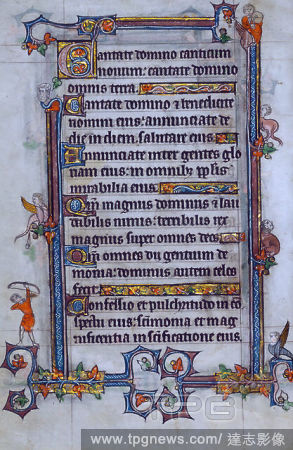 Cantate domino canticum
nouum: cantate domino
omnis terra.
Cantate domino & benedicite
nomini eius: annunciate de
die in diem salutare eius.
Annunciate inter gentes glo
riam eius: in omnib; ppl'is
mirabilia eius.
Qm magnus dominus & lau
dabilis nimis: terribilis
magnus super omnes deos.
Qm omnes dii gentium de
monia: dominus autem celos
fecit.
Confessio et pulchritudo in con
spectu eius: sc'imonia et mag
nificentia in sc'ificatione eius.
www.tpgnews.com / 達志影像